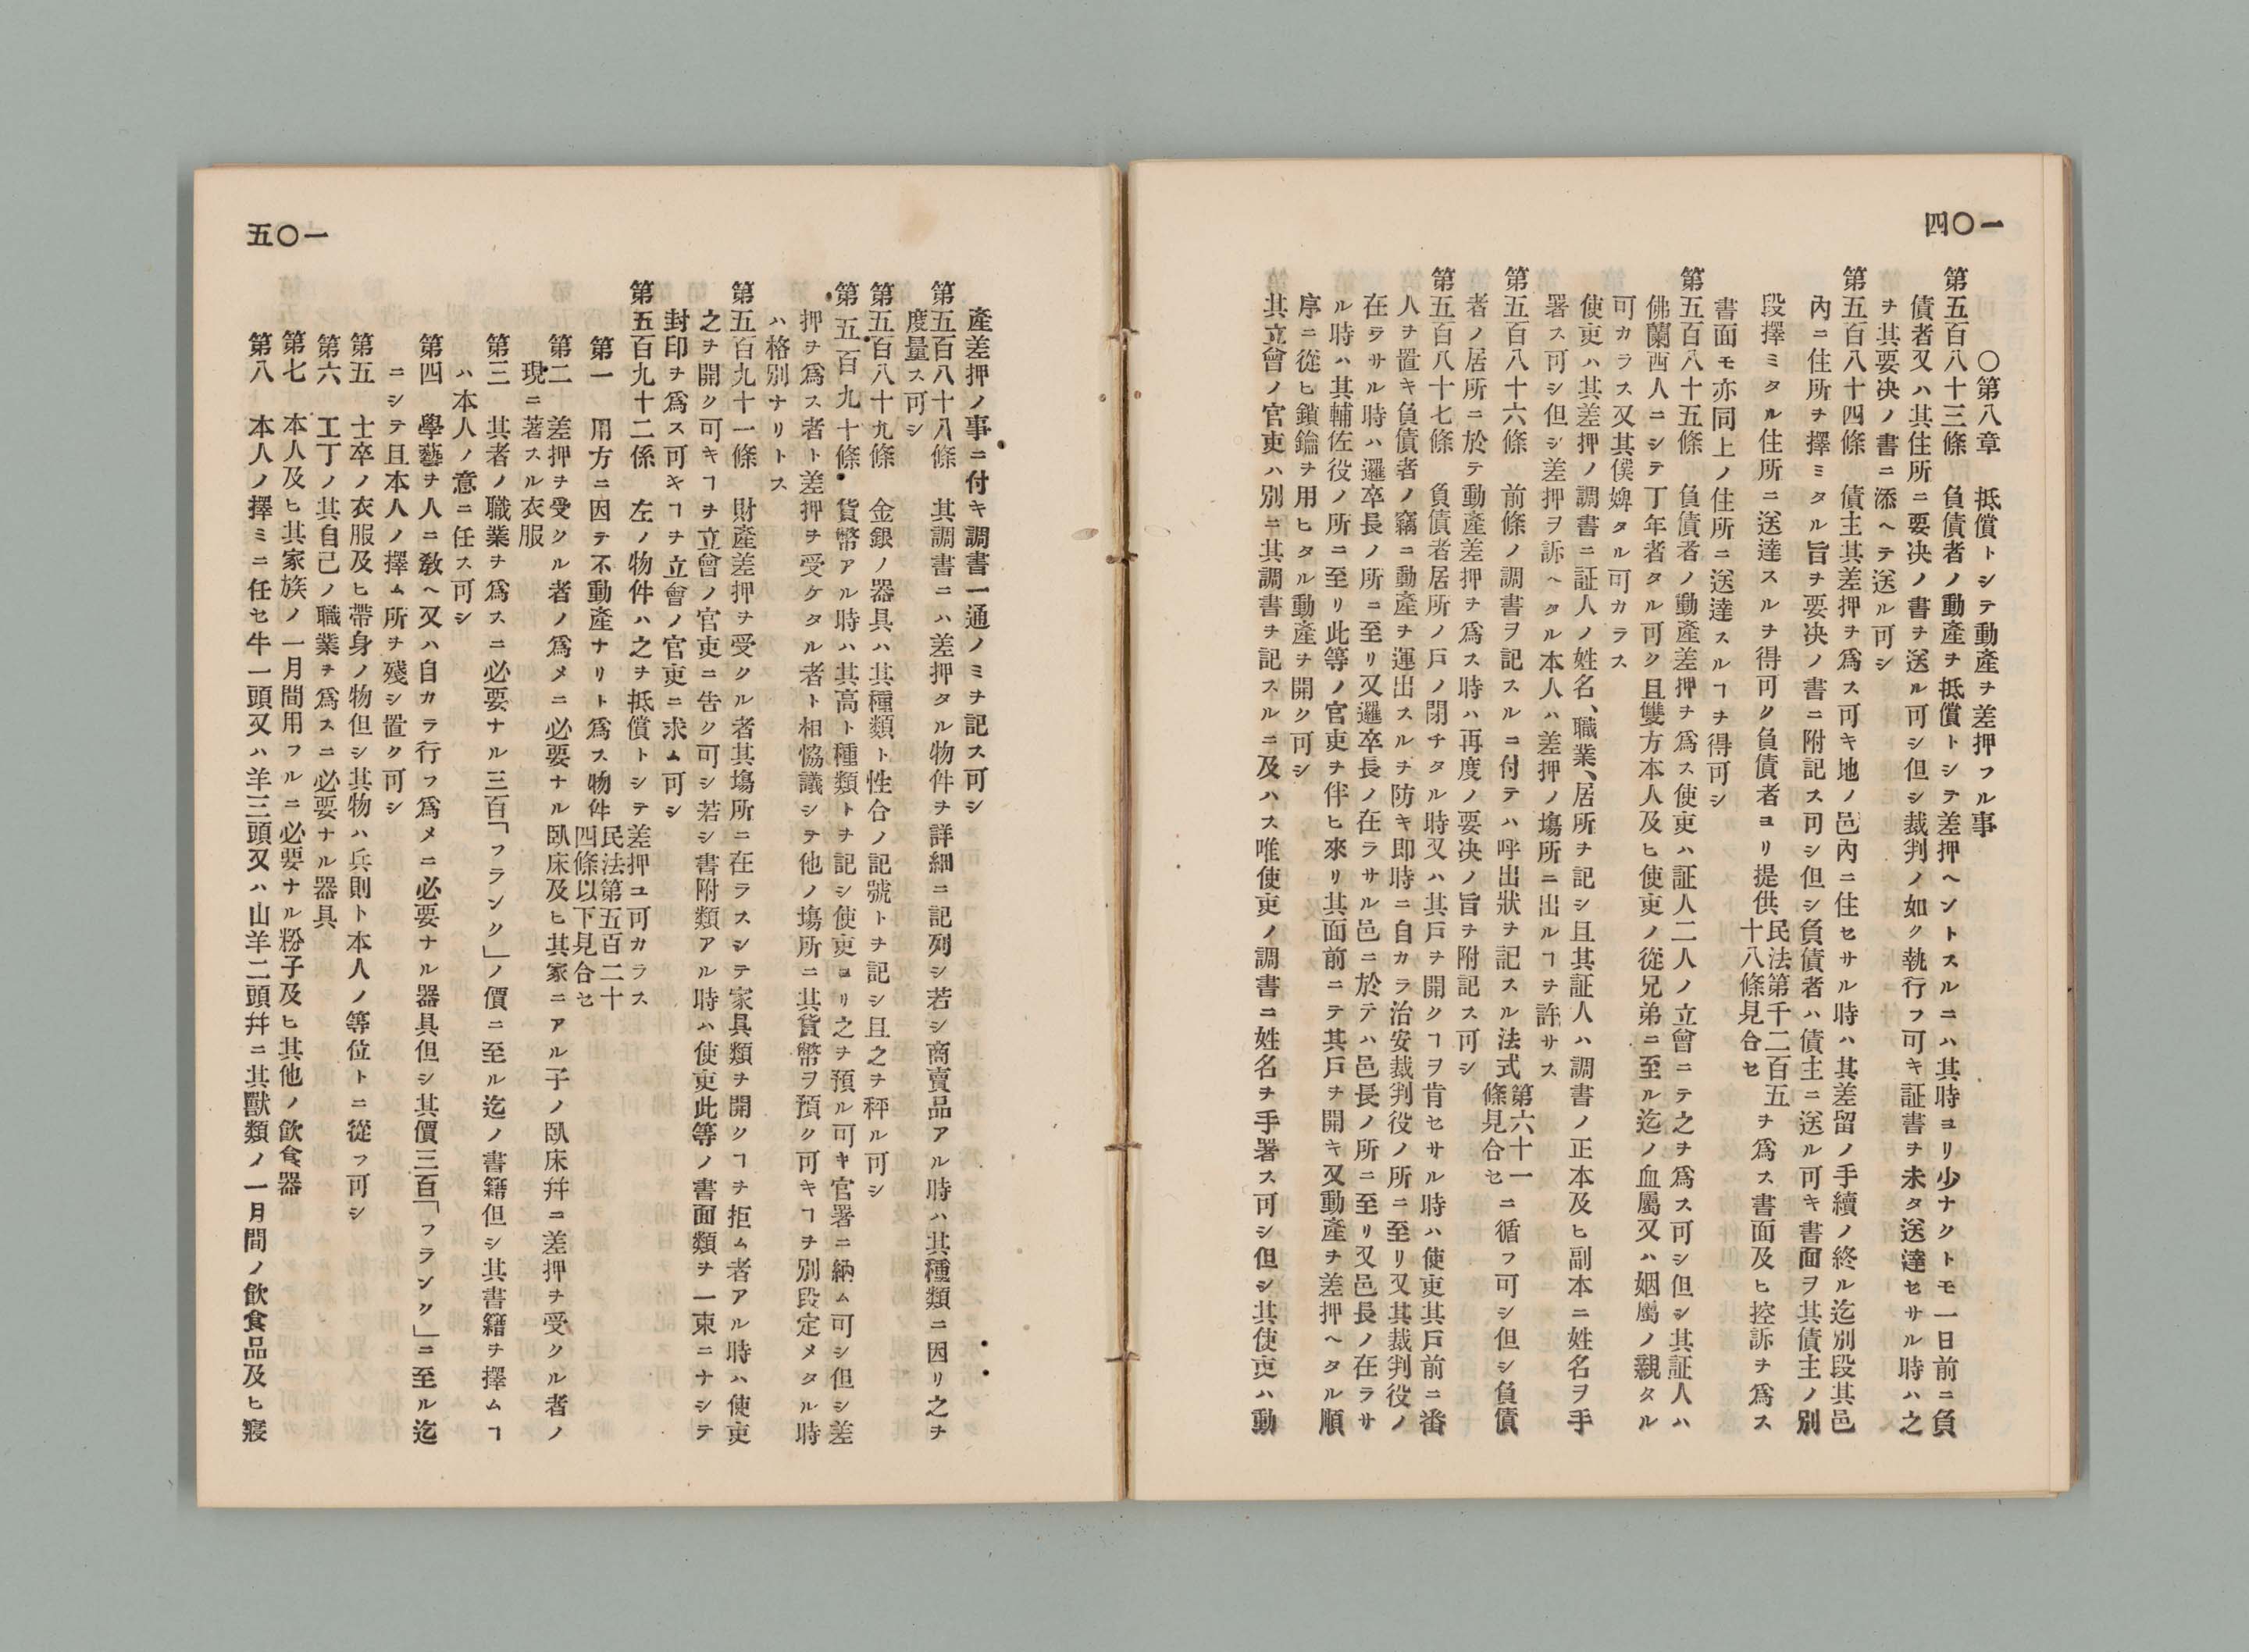 一〇四
〇第八章　抵償トシテ動產ヲ差押フル事
第五百八十三條　負債者ノ動產ヲ抵償トシテ差押ヘントスルニハ其時ヨリ少ナクトモ一日前ニ負
債者又ハ其住所ニ要决ノ書ヲ送ル可シ但シ裁判ノ如ク執行フ可キ証書ヲ未タ送達セサル時ハ之
ヲ其要决ノ書ニ添ヘテ送ル可シ
第五百八十四條　債主其差押ヲ爲ス可キ地ノ邑內ニ住セサル時ハ其差留ノ手續ノ終ル迄別段其邑
內ニ住所ヲ擇ミタル旨ヲ要决ノ書ニ附記ス可シ但シ負債者ハ債主ニ送ル可キ書面ヲ其債主ノ別
段擇ミタル住所ニ送達スルヲ得可ク負債者ヨリ提供民法第千二百五十八條見合セヲ爲ス書面及ヒ控訴ヲ爲ス
書面モ亦同上ノ住所ニ送達スルヿヲ得可シ
第五百八十五條　負債者ノ動產差押ヲ爲ス使吏ハ証人二人ノ立會ニテ之ヲ爲ス可シ但シ其証人ハ
佛蘭西人ニシテ丁年者タル可ク且雙方本人及ヒ使吏ノ從兄弟ニ至ル迄ノ血屬又ハ姻屬ノ親タル
可カラス又其僕婢タル可カラス
使吏ハ其差押ノ調書ニ証人ノ姓名、職業、居所ヲ記シ且其証人ハ調書ノ正本及ヒ副本ニ姓名ヲ手
署ス可シ但シ差押ヲ訴ヘタル本人ハ差押ノ塲所ニ出ルヿヲ許サス
第五百八十六條　前條ノ調書ヲ記スルニ付テハ呼出狀ヲ記スル法式第六十一條見合セニ循フ可シ但シ負債
者ノ居所ニ於テ動產差押ヲ爲ス時ハ再度ノ要决ノ旨ヲ附記ス可シ
第五百八十七條　負債者居所ノ戶ノ閉チタル時又ハ其戶ヲ開クヿヲ肯セサル時ハ使吏其戶前ニ番
人ヲ置キ負債者ノ竊ニ動產ヲ運出スルヲ防キ即時ニ自カラ治安裁判役ノ所ニ至リ又其裁判役ノ
在ラサル時ハ邏卒長ノ所ニ至リ又邏卒長ノ在ラサル邑ニ於テハ邑長ノ所ニ至リ又邑長ノ在ラサ
ル時ハ其輔佐役ノ所ニ至リ此等ノ官吏ヲ伴ヒ來リ其面前ニテ其戶ヲ開キ又動產ヲ差押ヘタル順
序ニ從ヒ鎖鑰ヲ用ヒタル動產ヲ開ク可シ
其立會ノ官吏ハ別ニ其調書ヲ記スルニ及ハス唯使吏ノ調書ニ姓名ヲ手署ス可シ但シ其使吏ハ動
一〇五
產差押ノ事ニ付キ調書一通ノミヲ記ス可シ
第五百八十八條　其調書ニハ差押タル物件ヲ詳細ニ記列シ若シ商賣品アル時ハ其種類ニ因リ之ヲ
度量ス可シ
第五百八十九條　金銀ノ器具ハ其種類ト性合ノ記號トヲ記シ且之ヲ秤ル可シ
第五百九十條　貨幣アル時ハ其高ト種類トヲ記シ使吏ヨリ之ヲ預ル可キ官署ニ納ム可シ但シ差
押ヲ爲ス者ト差押ヲ受ケタル者ト相恊議シテ他ノ塲所ニ其貨幣ヲ預ク可キヿヲ別段定メタル時
ハ格別ナリトス
第五百九十一條　財產差押ヲ受クル者其塲所ニ在ラスシテ家具類ヲ開クヿヲ拒ム者アル時ハ使吏
之ヲ開ク可キヿヲ立會ノ官吏ニ告ク可シ若シ書附類アル時ハ使吏此等ノ書面類ヲ一束ニナシテ
封印ヲ爲ス可キヿヲ立會ノ官吏ニ求ム可シ
第五百九十二係　左ノ物件ハ之ヲ抵償トシテ差押ユ可カラス
第一　用方ニ因テ不動產ナリト爲ス物件民法第五百二十四條以下見合セ
第二　差押ヲ受クル者ノ爲メニ必要ナル臥床及ヒ其家ニアル子ノ臥床幷ニ差押ヲ受クル者ノ
現ニ著スル衣服
第三　其者ノ職業ヲ爲スニ必要ナル三百「フランク」ノ價ニ至ル迄ノ書籍但シ其書籍ヲ擇ムヿ
ハ本人ノ意ニ任ス可シ
第四　學藝ヲ人ニ敎ヘ又ハ自カラ行フ爲メニ必要ナル器具但シ其價三百「フランク」ニ至ル迄
ニシテ且本人ノ擇ム所ヲ殘シ置ク可シ
第五　士卒ノ衣服及ヒ帶身ノ物但シ其物ハ兵則ト本人ノ等位トニ從フ可シ
第六　工丁ノ其自己ノ職業ヲ爲スニ必要ナル器具
第七　本人及ヒ其家族ノ一月間用フルニ必要ナル粉子及ヒ其他ノ飮食器
第八　本人ノ擇ミニ任セ牛一頭又ハ羊三頭又ハ山羊二頭幷ニ其獸類ノ一月間ノ飮食品及ヒ寢